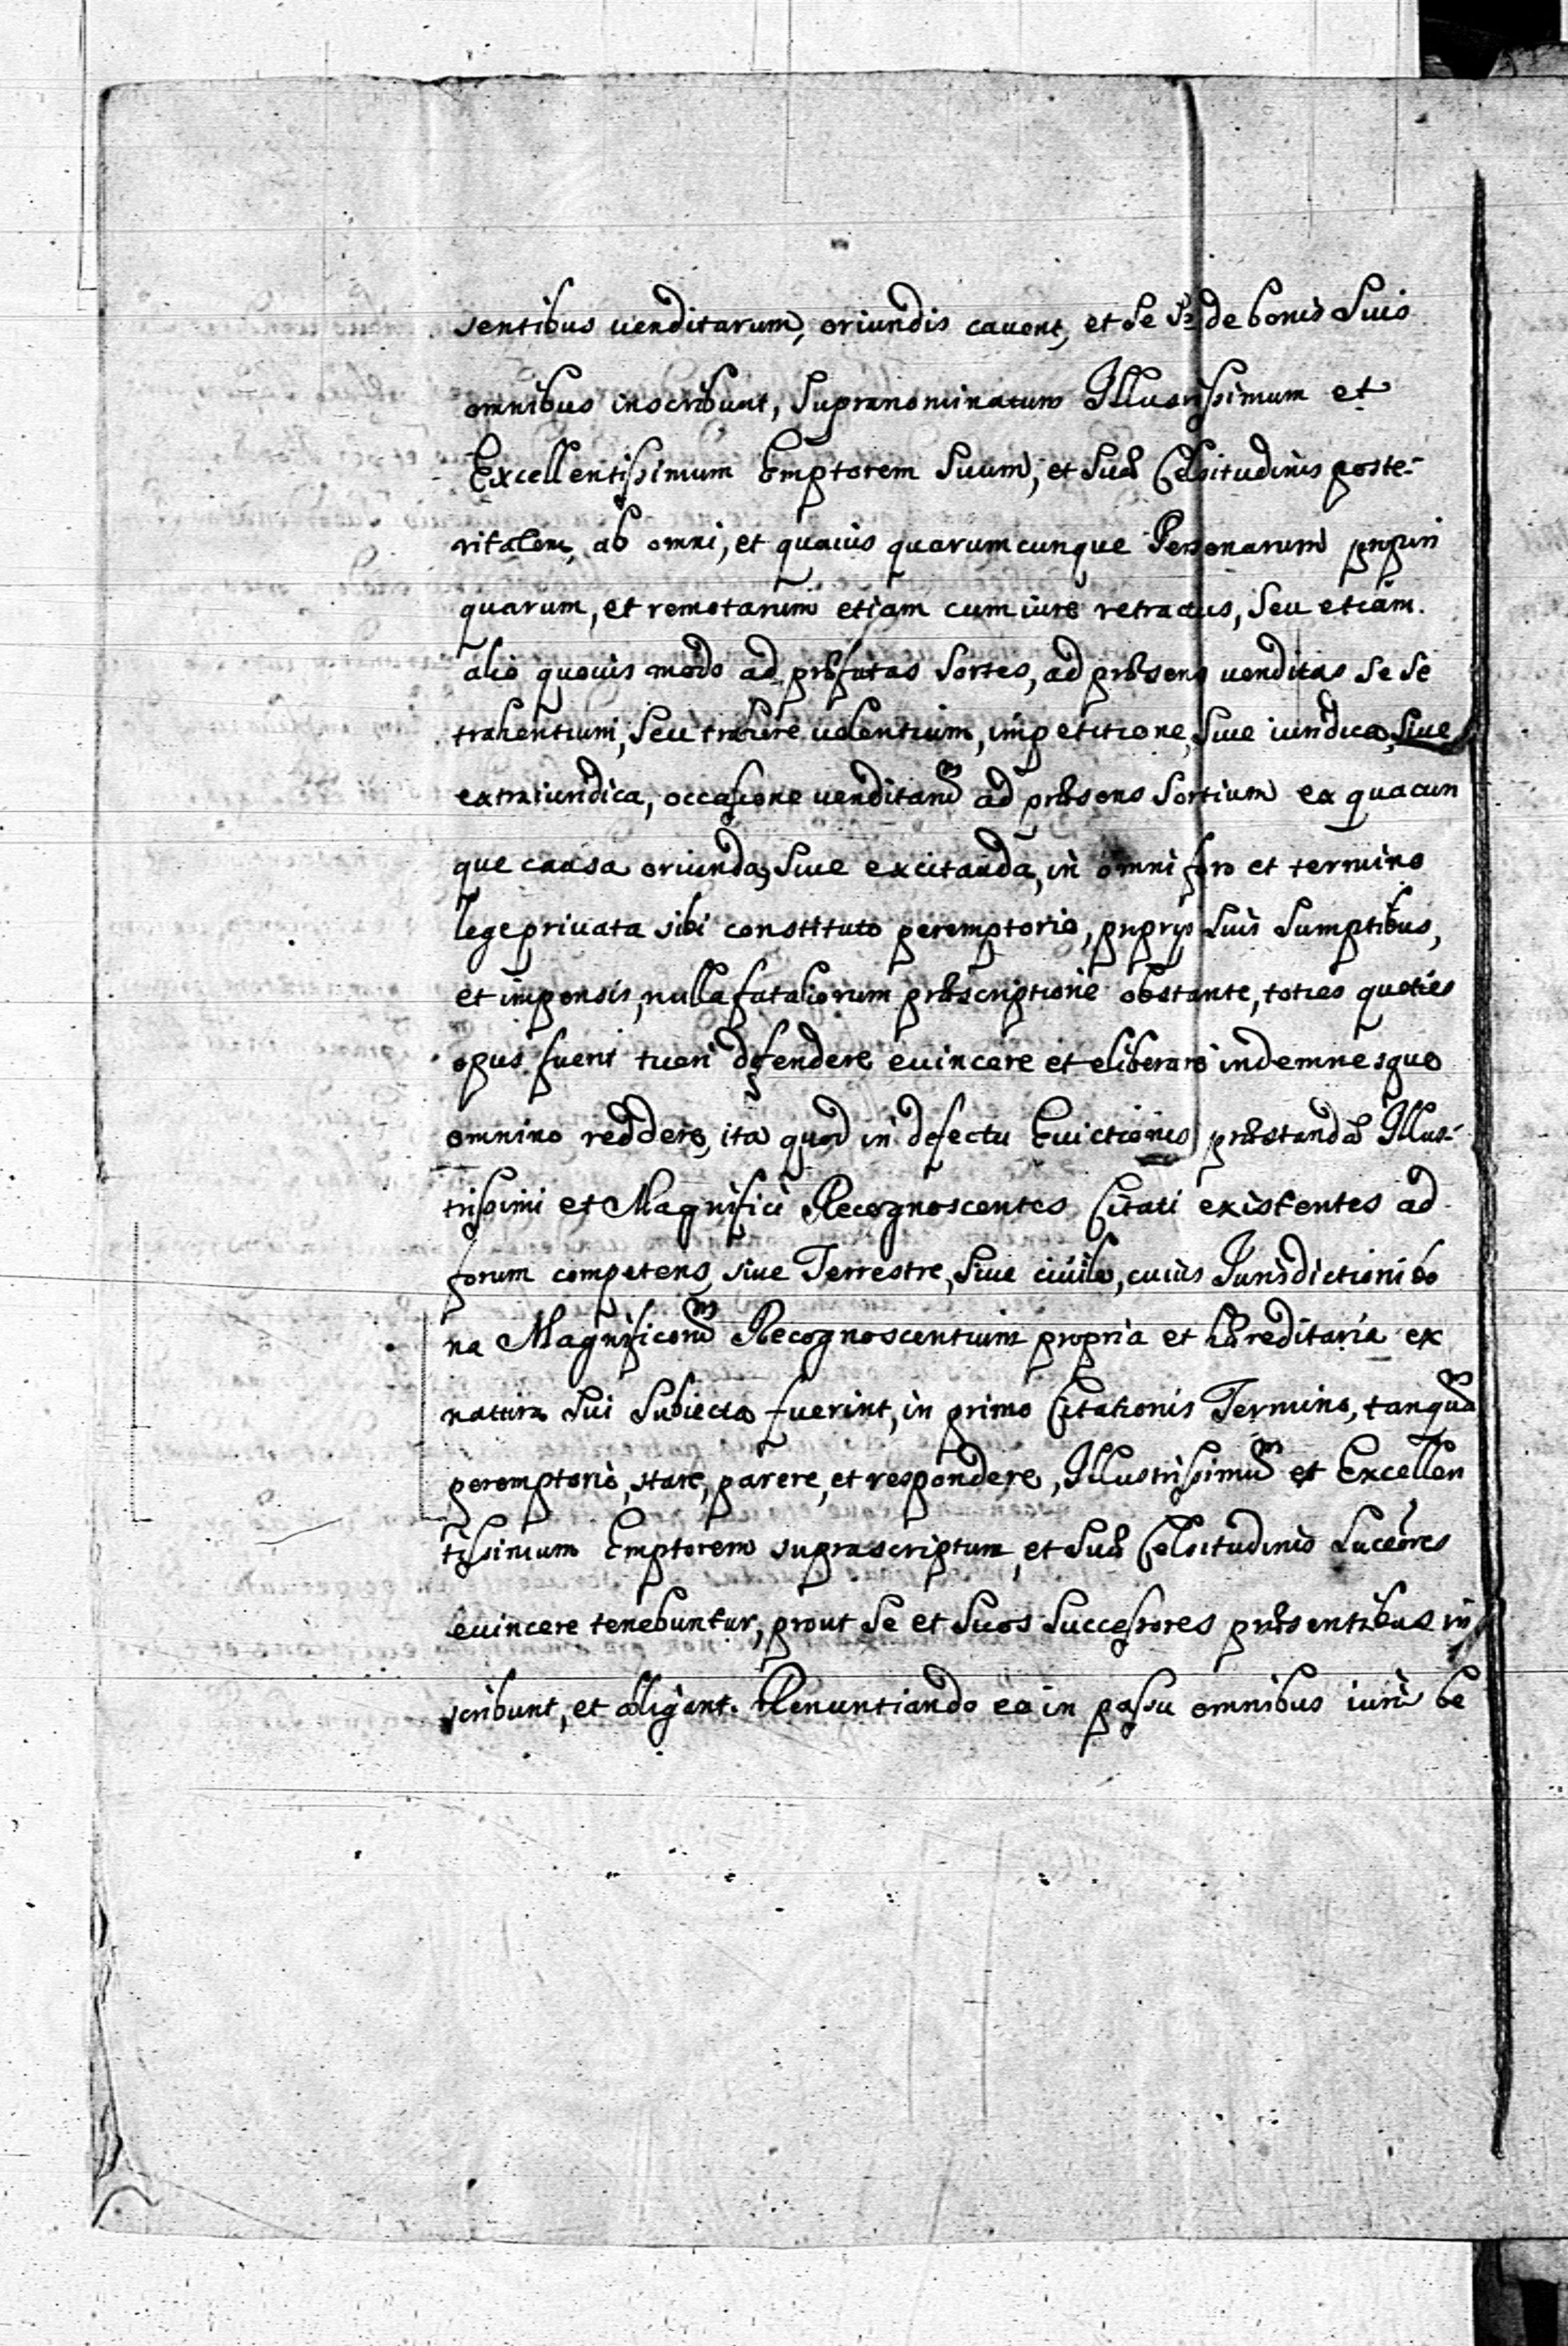 sentibus uenditarum, oriundis cauent, et se sr̃ de bonis suis
omnibus inscribunt, supranominatum Illustrissimum et
Excellentissimum Emptorem suum, et suæ Celsitudinis poste-
ritatem, ab omni, et quauis quarumcunque Personarum propin
quarum, et remotarum etiam cum iure retractus, seu etiam
alio quouis modo ad præfatas sortes, ad præsens uenditas se se
trahentium, seu trahere uolentium, impetitione, siue iuridica, siue
extraiuridica, occasione uenditarũ ad præsens sortium ex quacun
que causa oriunda, siue excitanda, in omni foro et termino
lege priuata sibi constituto peremptorio, proprijs suis sumptibus,
et impensis, nulla fataliorum præscriptione obstante, toties quoties
opus fuerit tueri defendere euincere et eliberare indemnesque
omnino reddere, ita quod in defectu Euictionis præstandæ Illus-
trissimi et Magnifici Recognoscentes Citati existentes ad
forum competens, siue Terrestre, siue ciuile, cuius Iurisdictioni bo
na Magnificorũ Recognoscentium propria et hæreditaria ex
natura sui subiecta fuerint, in primo Citationis Termino, tanquã
peremptorio, stare, parere, et respondere, Illustrissimũ et Excellen
tissimum Emptorem suprascriptum, et suæ Celsitudinis succeores
euincere tenebuntur, prout se et suos successores præsentibus in
scribunt, et obligant. Renuntiando eo in passu omnibus iuriũ be